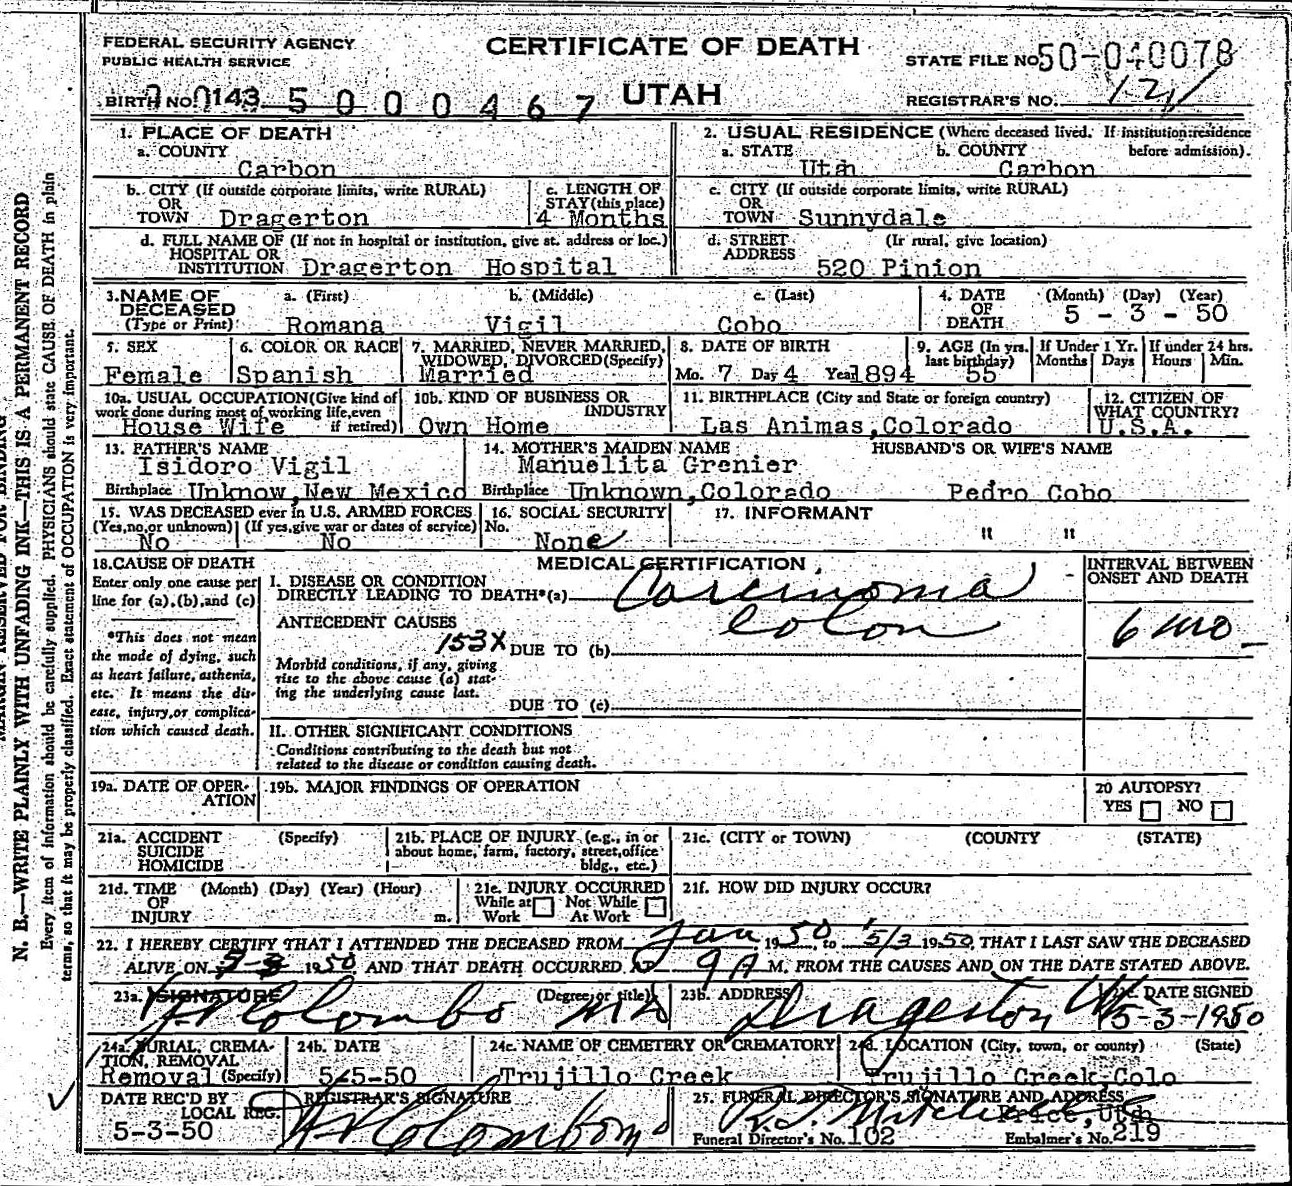 FEDERAL SECURITY AGENCY
PUBLIC HEALTH SERVICE
CERTIFICATE OF DEATH
UTAH
STATE FILE NO. 50-040078
BIRTH NO. 0143 5000467
REGISTRAR'S NO. 121
1. PLACE OF DEATH
a. COUNTY
Carbon
2. USUAL RESIDENCE (Where deceased lived. If institution: residence before admission).
a. STATE Utah b. COUNTY Carbon
b. CITY (If outside corporate limits, write RURAL)
OR
TOWN Dragerton
c. LENGTH OF STAY (this place)
4 Months
c. CITY (If outside corporate limits, write RURAL)
OR
TOWN Sunnydale
d. FULL NAME OF (If not in hospital or institution, give st. address or loc.)
HOSPITAL OR
INSTITUTION Dragerton Hospital
d. STREET (Ir rural, give location)
ADDRESS
520 Pinion
3. NAME OF DECEASED
(Type or Print)
a. (First) b. (Middle) c. (Last)
Romana Vigil Cobo
4. DATE OF DEATH
(Month) (Day) (Year)
5 - 3 - 50
5. SEX
Female
6. COLOR OR RACE
Spanish
7. MARRIED, NEVER MARRIED, WIDOWED, DIVORCED (Specify)
Married
8. DATE OF BIRTH
Mo. 7 Day 4 Year 1894
9. AGE (In yrs. last birthday)
55
If Under 1 Yr.
Months Days
If under 24 hrs.
Hours Min.
10a. USUAL OCCUPATION (Give kind of work done during most of working life, even if retired)
House Wife
10b. KIND OF BUSINESS OR INDUSTRY
Own Home
11. BIRTHPLACE (City and State or foreign country)
Las Animas, Colorado
12. CITIZEN OF WHAT COUNTRY?
U.S.A.
13. FATHER'S NAME
Isidoro Vigil
Birthplace Unknow, New Mexico
14. MOTHER'S MAIDEN NAME
Manuelita Grenier
Birthplace Unknown, Colorado
HUSBAND'S OR WIFE'S NAME
Pedro Cobo
15. WAS DECEASED ever in U.S. ARMED FORCES
(Yes, no, or unknown) (If yes, give war or dates of service)
No No
16. SOCIAL SECURITY No.
None
17. INFORMANT
" "
18. CAUSE OF DEATH
Enter only one cause per line for (a), (b), and (c)
*This does not mean the mode of dying, such as heart failure, asthenia, etc. It means the disease, injury, or complication which caused death.
MEDICAL CERTIFICATION
I. DISEASE OR CONDITION
DIRECTLY LEADING TO DEATH*(a) Carcinoma
Colon
INTERVAL BETWEEN ONSET AND DEATH
6 mo
ANTECEDENT CAUSES
153X DUE TO (b)
Morbid conditions, if any, giving rise to the above cause (a) stating the underlying cause last.
DUE TO (c)
II. OTHER SIGNIFICANT CONDITIONS
Conditions contributing to the death but not related to the disease or condition causing death.
19a. DATE OF OPERATION
19b. MAJOR FINDINGS OF OPERATION
20 AUTOPSY?
YES NO
21a. ACCIDENT (Specify)
SUICIDE
HOMICIDE
21b. PLACE OF INJURY (e.g., in or about home, farm, factory, street, office bldg., etc.)
21c. (CITY or TOWN) (COUNTY) (STATE)
21d. TIME (Month) (Day) (Year) (Hour)
OF
INJURY m.
21e. INJURY OCCURRED
While at Work Not While At Work
21f. HOW DID INJURY OCCUR?
22. I HEREBY CERTIFY THAT I ATTENDED THE DECEASED FROM Jan 1950, to 5/3 1950, THAT I LAST SAW THE DECEASED
ALIVE ON 5-3 1950 AND THAT DEATH OCCURRED AT 9 A M. FROM THE CAUSES AND ON THE DATE STATED ABOVE.
23a. SIGNATURE (Degree or title)
Colombo MD
23b. ADDRESS
Dragerton
23c. DATE SIGNED
5-3-1950
24a. BURIAL, CREMATION, REMOVAL
Removal (Specify)
24b. DATE
5-5-50
24c. NAME OF CEMETERY OR CREMATORY
Trujillo Creek
24d. LOCATION (City, town, or county) (State)
Trujillo Creek, Colo
DATE REC'D BY LOCAL REG.
5-3-50
REGISTRAR'S SIGNATURE
Colombo
25. FUNERAL DIRECTOR'S SIGNATURE AND ADDRESS
Mitchell
Price, Utah
Funeral Director's No. 102 Embalmer's No. 219
N. B.—WRITE PLAINLY WITH UNFADING INK—THIS IS A PERMANENT RECORD
Every item of information should be carefully supplied. PHYSICIANS should state CAUSE OF DEATH in plain
terms, so that it may be properly classified. Exact statement of OCCUPATION is very important.